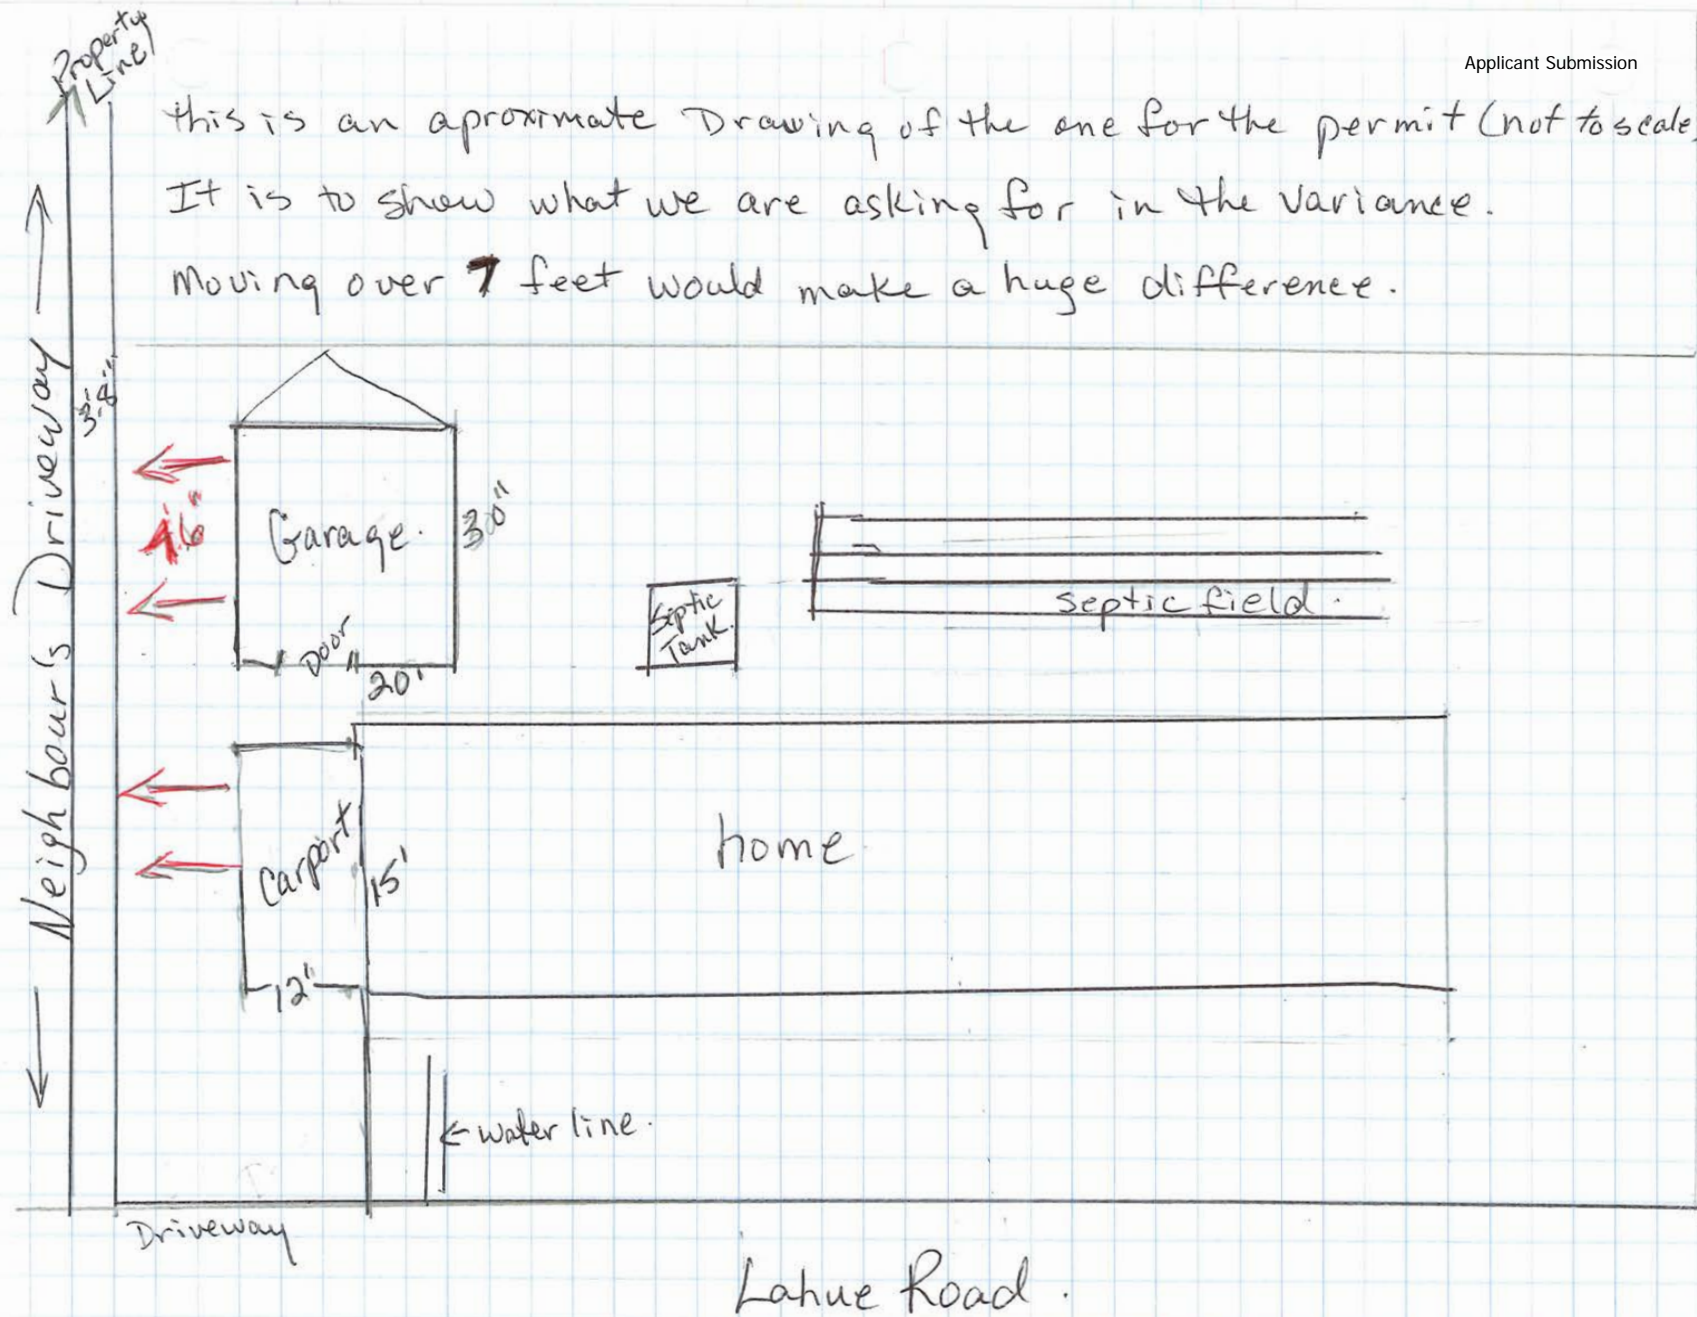 Applicant Submission
Property
Line
this is an aproximate Drawing of the one for the permit (not to scale)
It is to show what we are asking for in the variance.
Moving over 7 feet would make a huge difference.
Neighbour's Driveway
3'8"
Garage.
30"
Door
20'
Septic
Tank.
septic field.
Carport
15'
12'
home
← water line.
Driveway
Lahue Road.